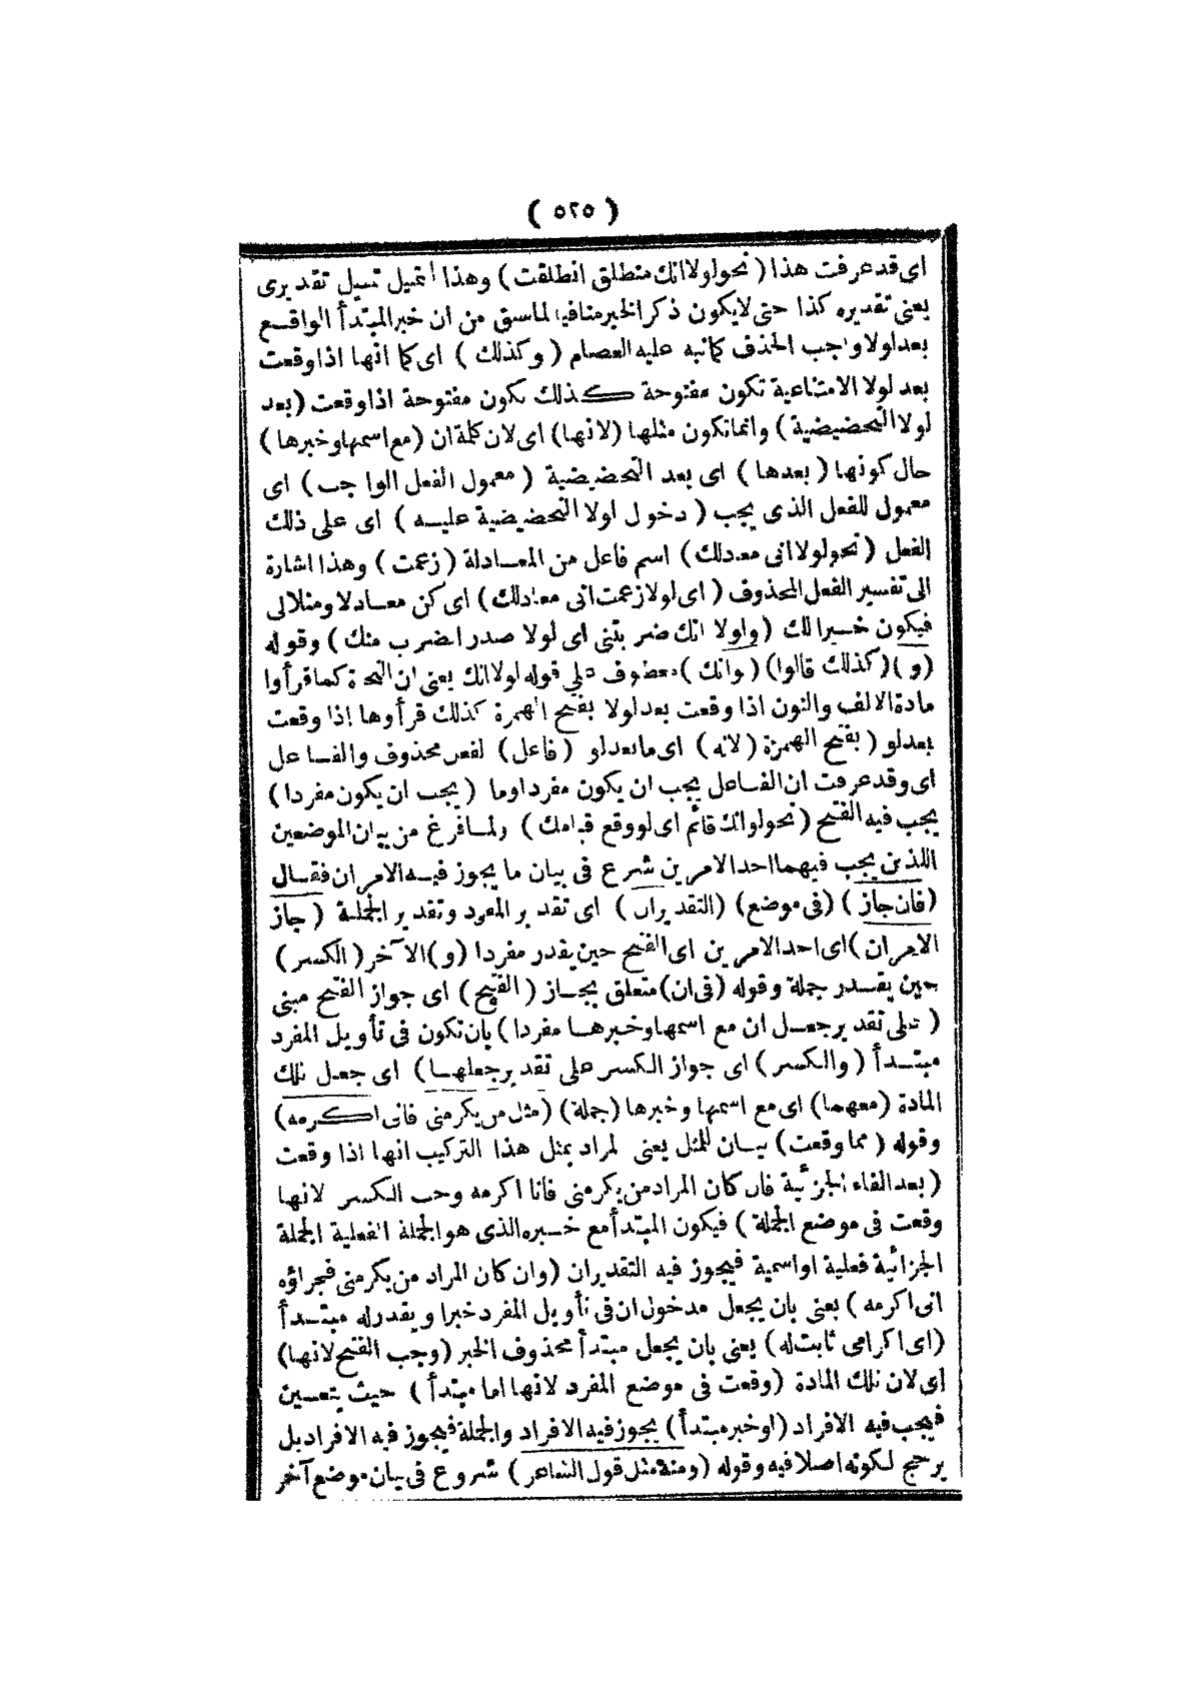 ( ٥٢٥ )
اى قد عرفت هذا ( نحو لولا انك منطلق انطلقت ) وهذا التمثيل تمثيل تقديرى
يعنى تقديره كذا حتى لا يكون ذكر الخبر منافيا لما سبق من ان خبر المبتدأ الواقع
بعد لولا واجب الحذف كما نبه عليه العصام ( وكذلك ) اى كما انها اذا وقعت
بعد لولا الامتناعية تكون مفتوحة كذلك تكون مفتوحة اذا وقعت ( بعد
لولا التحضيضية ) وانما تكون مثلها ( لانها ) اى لان كلمة ان ( مع اسمها وخبرها )
حال كونها ( بعدها ) اى بعد التحضيضية ( معمول الفعل الواجب ) اى
معمول للفعل الذى يجب ( دخول لولا التحضيضية عليه ) اى على ذلك
الفعل ( نحو لولا انى معدلك ) اسم فاعل من المعادلة ( زعمت ) وهذا اشارة
الى تفسير الفعل المحذوف ( اى لولا زعمت انى معادلك ) اى كن معادلا ومثلا لى
فيكون خسيرا لك ( ولولا انك ضربتنى اى لولا صدر الضرب منك ) وقوله
( و ) ( كذلك قالوا ) ( لو انك ) معطوف على قوله لولا انك يعنى ان النحاة كما قرأوا
مادة الالف والنون اذا وقعت بعد لولا بفتح الهمزة كذلك قرأوها اذا وقعت
بعد لو ( بفتح الهمزة ( لانه ) اى ما بعد لو ( فاعل ) لفعل محذوف والفاعل
اى وقد عرفت ان الفاعل يجب ان يكون مفردا وما ( يجب ان يكون مفردا )
يجب فيه الفتح ( نحو لو انك قائم اى لو وقع قيامك ) ولما فرغ من بيان الموضعين
اللذين يجب فيهما احد الامرين شرع فى بيان ما يجوز فيه الامران فقال
( فان جاز ) ( فى موضع ) ( التقديران ) اى تقدير المفرد وتقدير الجملة ( جاز
الامران ) اى احد الامرين اى الفتح حين يقدر مفردا ( و ) الآخر ( الكسر )
حين يقدر جملة وقوله ( فى ان ) متعلق بجاز ( الفتح ) اى جواز الفتح مبنى
( على تقدير جعل ان مع اسمها وخبرها مفردا ) بان تكون فى تأويل المفرد
مبتدأ ( والكسر ) اى جواز الكسر على تقدير جعلها ) اى جعل تلك
المادة ( معهما ) اى مع اسمها وخبرها ( جملة ) ( مثل من يكرمنى فانى اكرمه )
وقوله ( مما وقعت ) بيان للمثل يعنى لمراد بمثل هذا التركيب انها اذا وقعت
( بعد الفاء الجزئية فان كان المراد من يكرمنى فانا اكرمه وجب الكسر لانها
وقعت فى موضع الجملة ) فيكون المبتدأ مع خبره الذى هو الجملة الفعلية الجملة
الجزائية فعلية او اسمية فيجوز فيه التقديران ( وان كان المراد من يكرمنى فجزاؤه
انى اكرمه ) يعنى بان يجعل مدخول ان فى تأويل المفرد خبرا ويقدر له مبتدأ
( اى اكرامى ثابت له ) يعنى بان يجعل مبتدأ محذوف الخبر ( وجب الفتح لانها )
اى لان تلك المادة ( وقعت فى موضع المفرد لانها اما مبتدأ ) حيث يتعين
فيجب فيه الافراد ( او خبر مبتدأ ) يجوز فيه الافراد والجملة فيجوز فيه الافراد بل
يرجح لكونه اصلا فيه وقوله ( ومنه مثل قول الشاعر ) شروع فى بيان موضع آخر